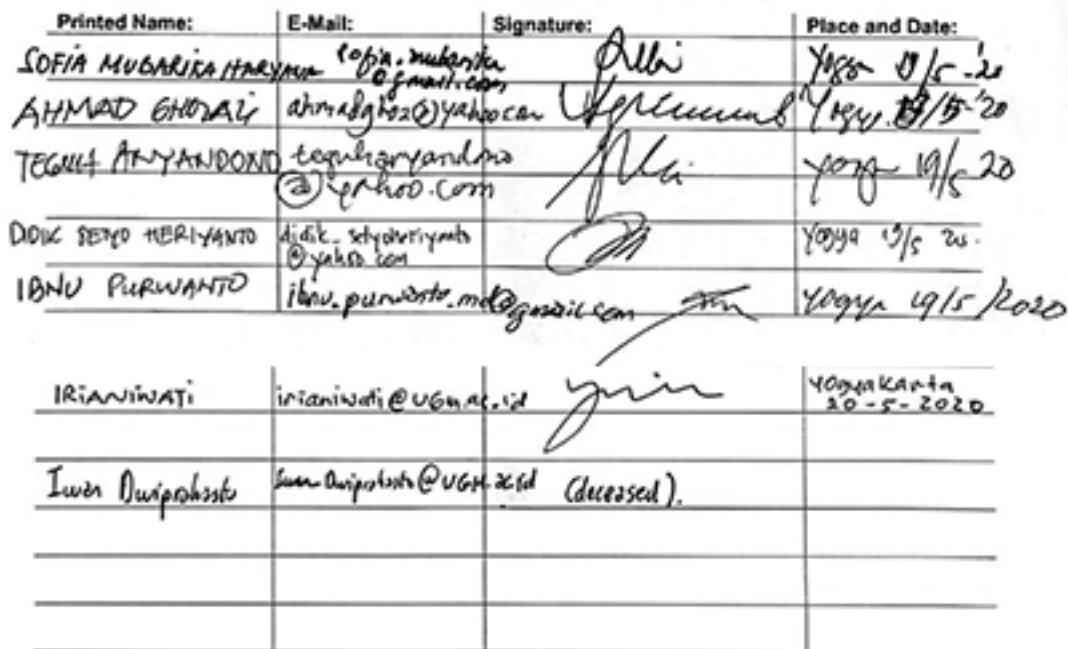 Printed Name: E-Mail: Signature: Place and Date:
SOFIA MUBARIKA HARYANA sofia.mubarika Yogya 19/5-'20
@gmail.com
AHMAD GHOZALI ahmadghoz2@yahoo.com Yogy. 19/5-'20
TEGUH ARYANDONO teguharyandono Yogya 19/5 20
@yahoo.com
DIDIK SETYO HERIYANTO didik_setyoheriyanto Yogya 19/5 20.
@yahoo.com
IBNU PURWANTO ibnu.purwanto.md@gmail.com Yogya 19/5/2020
IRIANIWATI irianiwati@UGM.ac.id Yogyakarta
20-5-2020
Iwan Dwiprahasto Iwan Dwiprahasto@UGM.ac.id (deceased).